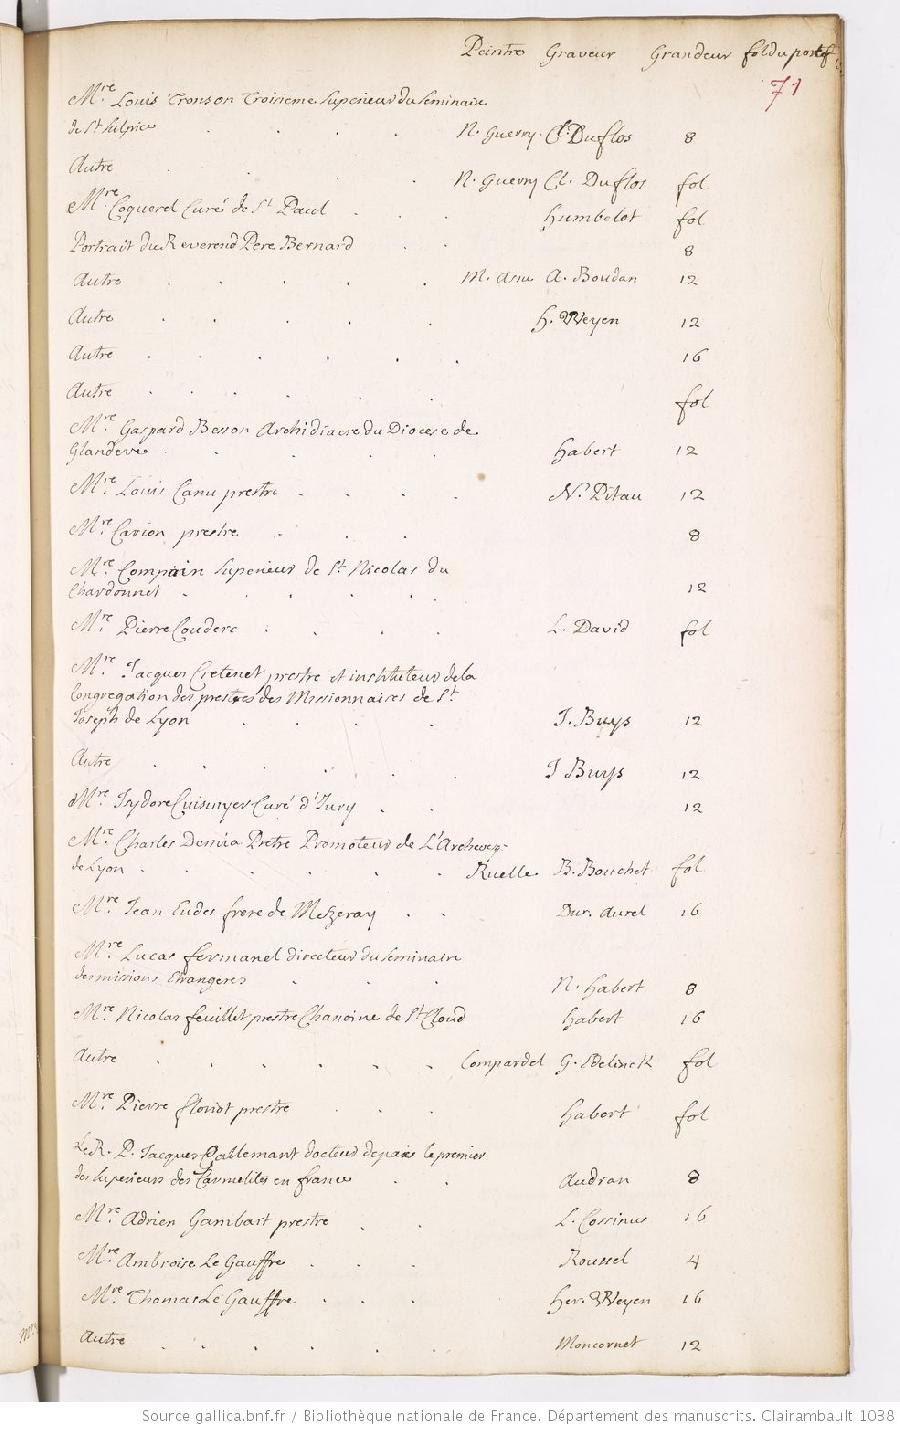 Peintre Graveur Grandeur fol du portef
71
Mre. Louis Tronson Troisieme Superieur du Seminaire
de St. Sulpice N. Guerry C. Duflos 8
Autre N. Guerry Cl. Duflos fol
Mre. Coquerel Curé de St. Paul Humbelot fol
Portrait du Reverend Pere Bernard 8
Autre M. Asne A. Boudan 12
Autre H. Weyen 12
Autre 16
Autre fol
Mre. Gaspard Besson Archidiacre du Diocese de
Glandeve Habert 12
Mre. Louis Canu prestre N. Pitau 12
Mre. Cavion prestre 8
Mre. Compain Superieur de St. Nicolas du
Chardonnet 12
Mre. Pierre Couderc L. David fol
Mre. Jacques Cretenet prestre et instituteur de la
Congregation des prestres des Missionnaires de St.
Joseph de Lyon J. Buys 12
Autre J Buys 12
Mre. Isydore Curé d'Ivry 12
Mre. Charles Pretre Promoteur de L'Archeveq.
de Lyon Ruelle B. Bouchet fol
Mre. Jean Eudes frere de Mezeray Dur. Aurel 16
Mre. Lucas fermanel directeur du Seminaire
des missions Etrangeres N. Habert 8
Mre. Nicolas feuillet prestre Chanoine de St. Cloud Habert 16
Autre Compardel G. Edelinck fol
Mre. Pierre floriot prestre Habert fol
Le R. P. Jacques Gallemant docteur de paris le premier
des Superieurs des Carmelites en france Audran 8
Mre. Adrien Gambart prestre L. Cossinus 16
Mre. Ambroise Le Gauffre Roussel 4
Mre. Thomas Le Gauffre Her. Weyen 16
Autre Moncornet 12
Source gallica.bnf.fr / Bibliothèque nationale de France. Département des manuscrits. Clairambault 1038